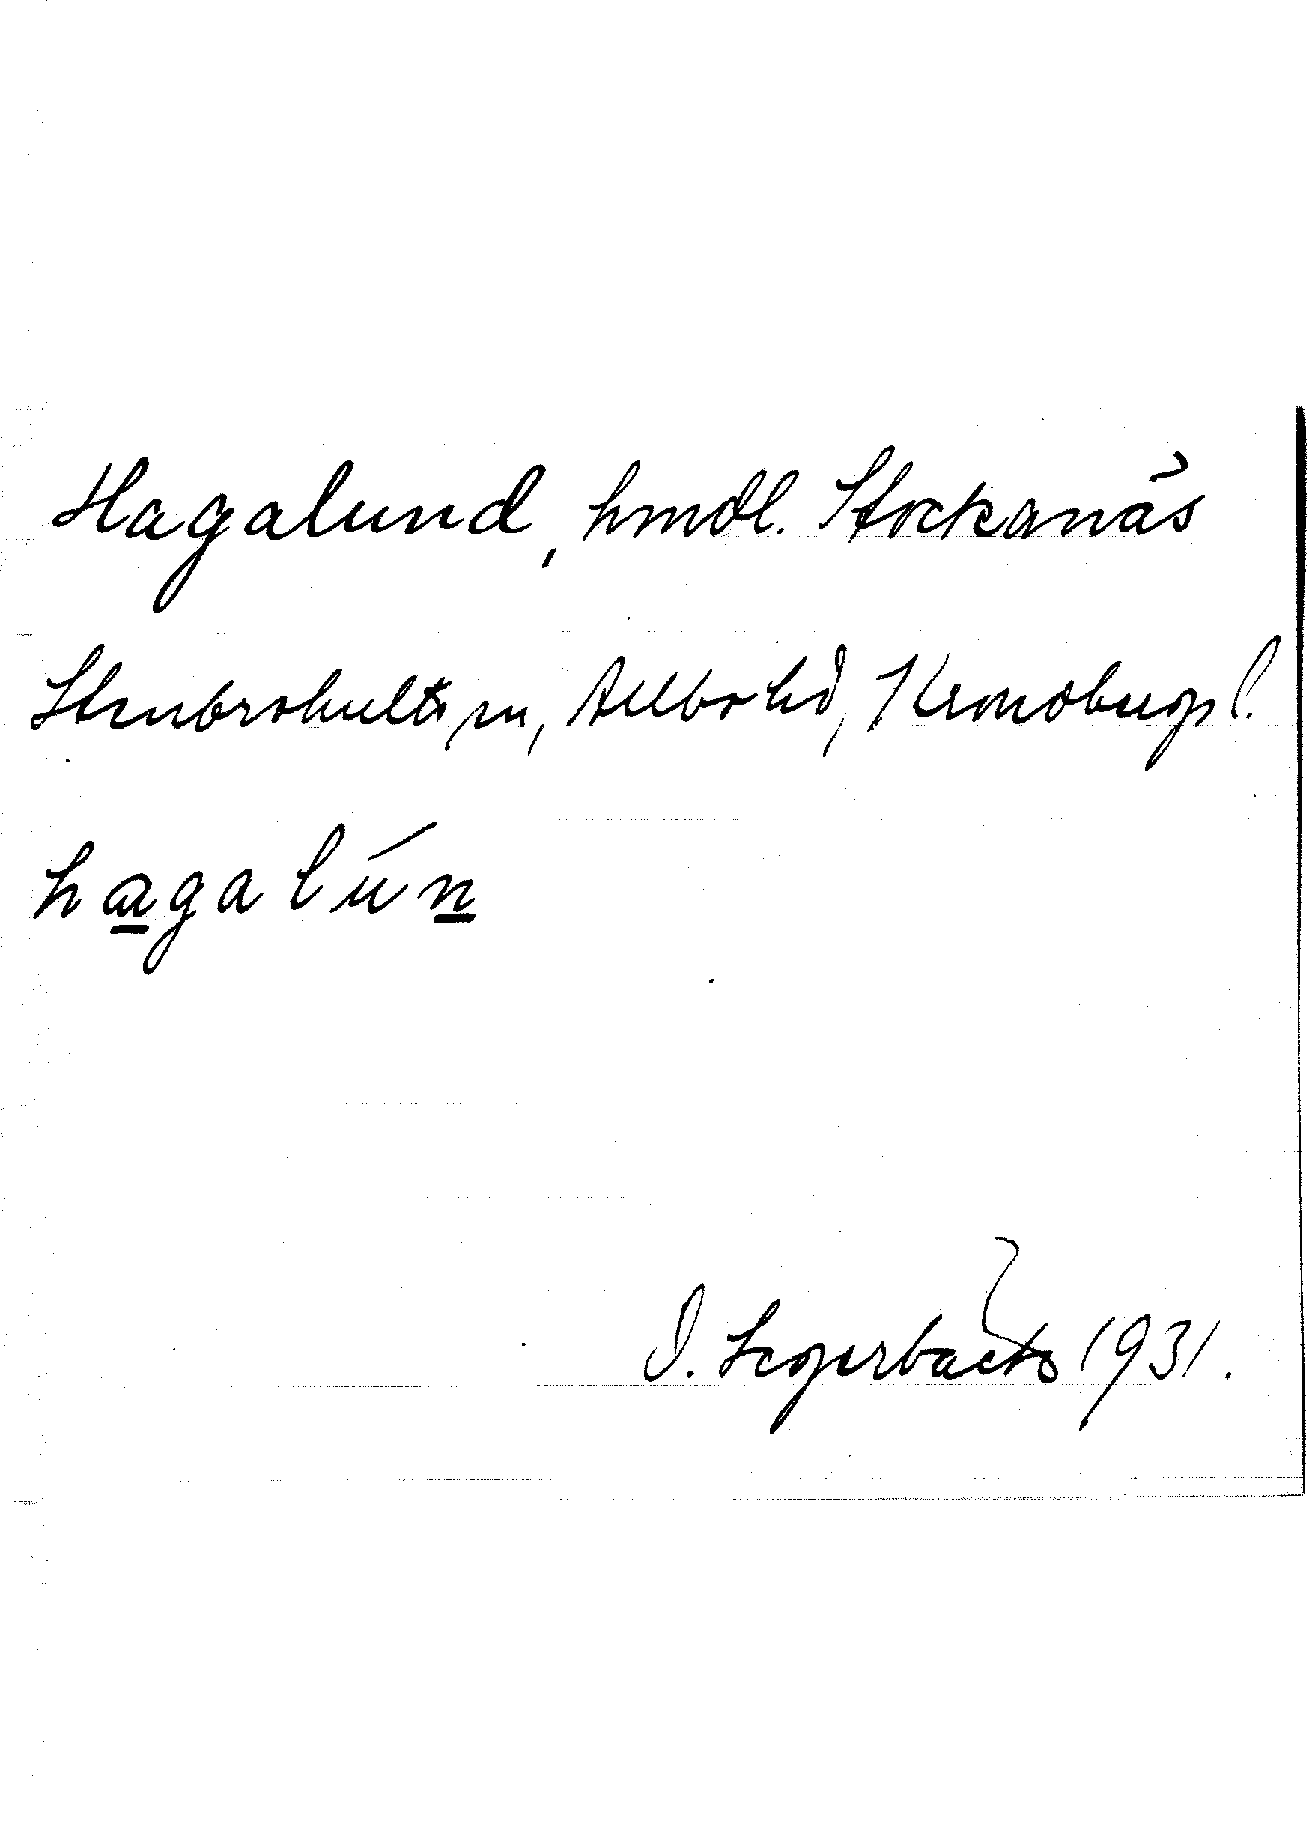 Hagalund, hmdl. Stockanäs
Stenbrohults sn, Allbo hd, Kronobergs l.
hagalún
D. Segerbäck 1931.